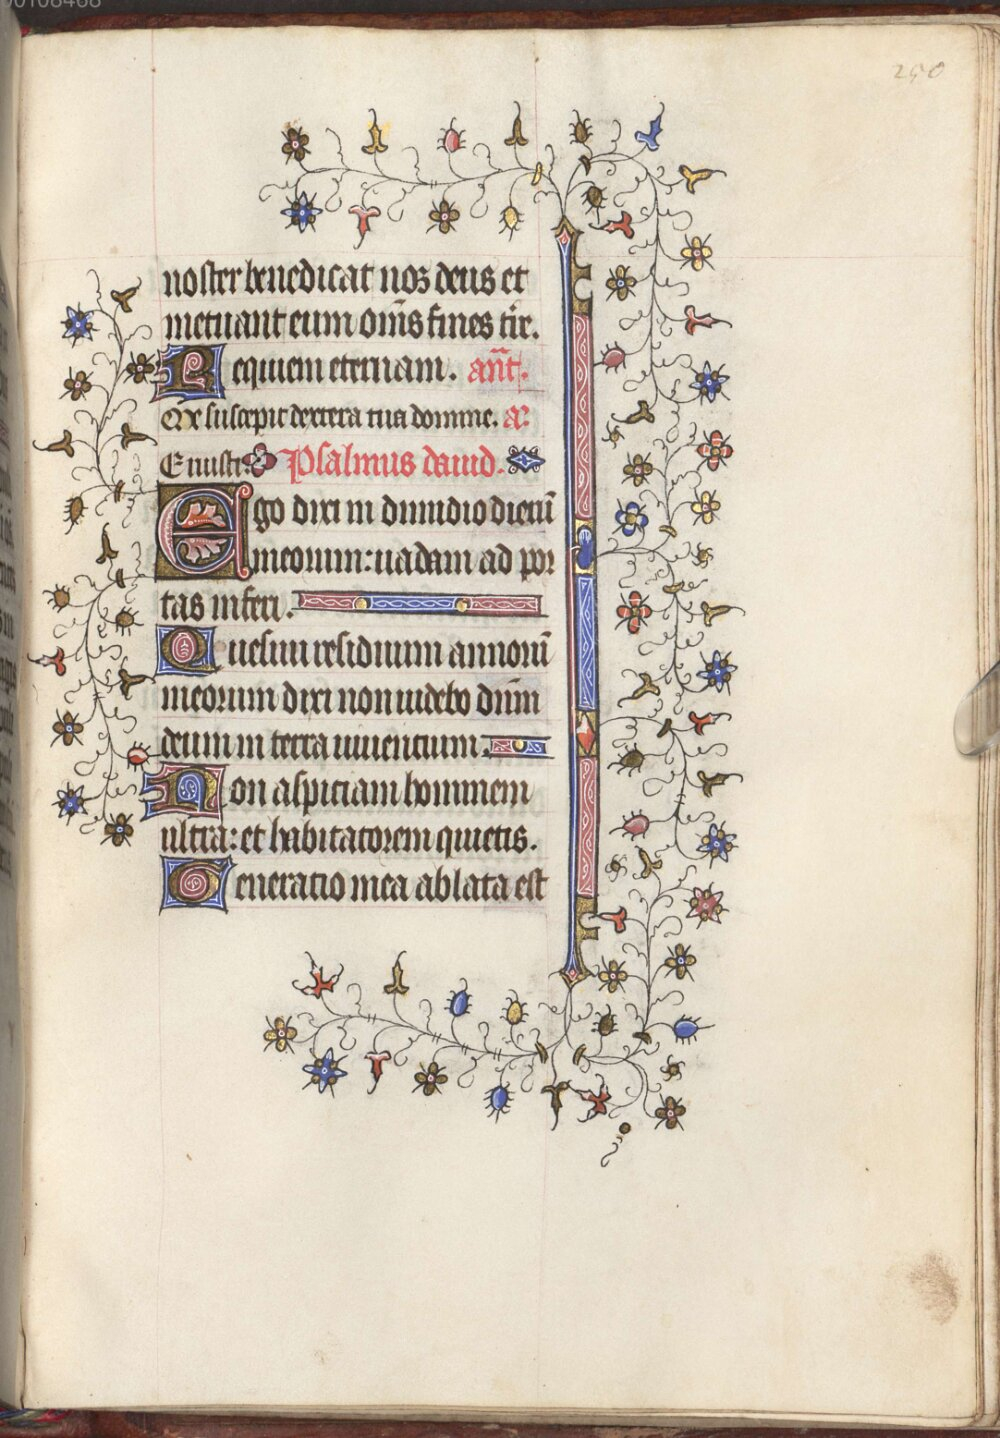 00108468
250
noster benedicat nos deus et
metuant eum om̅s fines tr̅e.
Requiem eternam. an̅t.
Me suscepit dextera tua domine. a.
Eruisti. Psalmus dauid.
Ego dixi in dimidio dieru̅
meorum: uadam ad por
tas inferi.
Quesiui residuum annoru̅
meorum dixi non uidebo dn̅m
deum in terra uiuentium.
Non aspiciam hominem
ultra: et habitatorem quietis.
Generatio mea ablata est